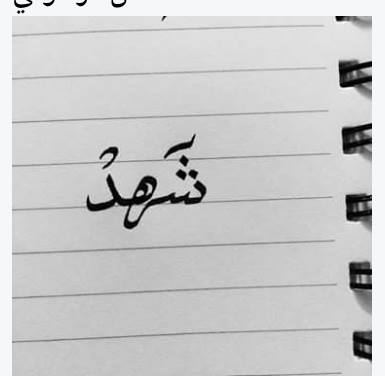 شَهدْ